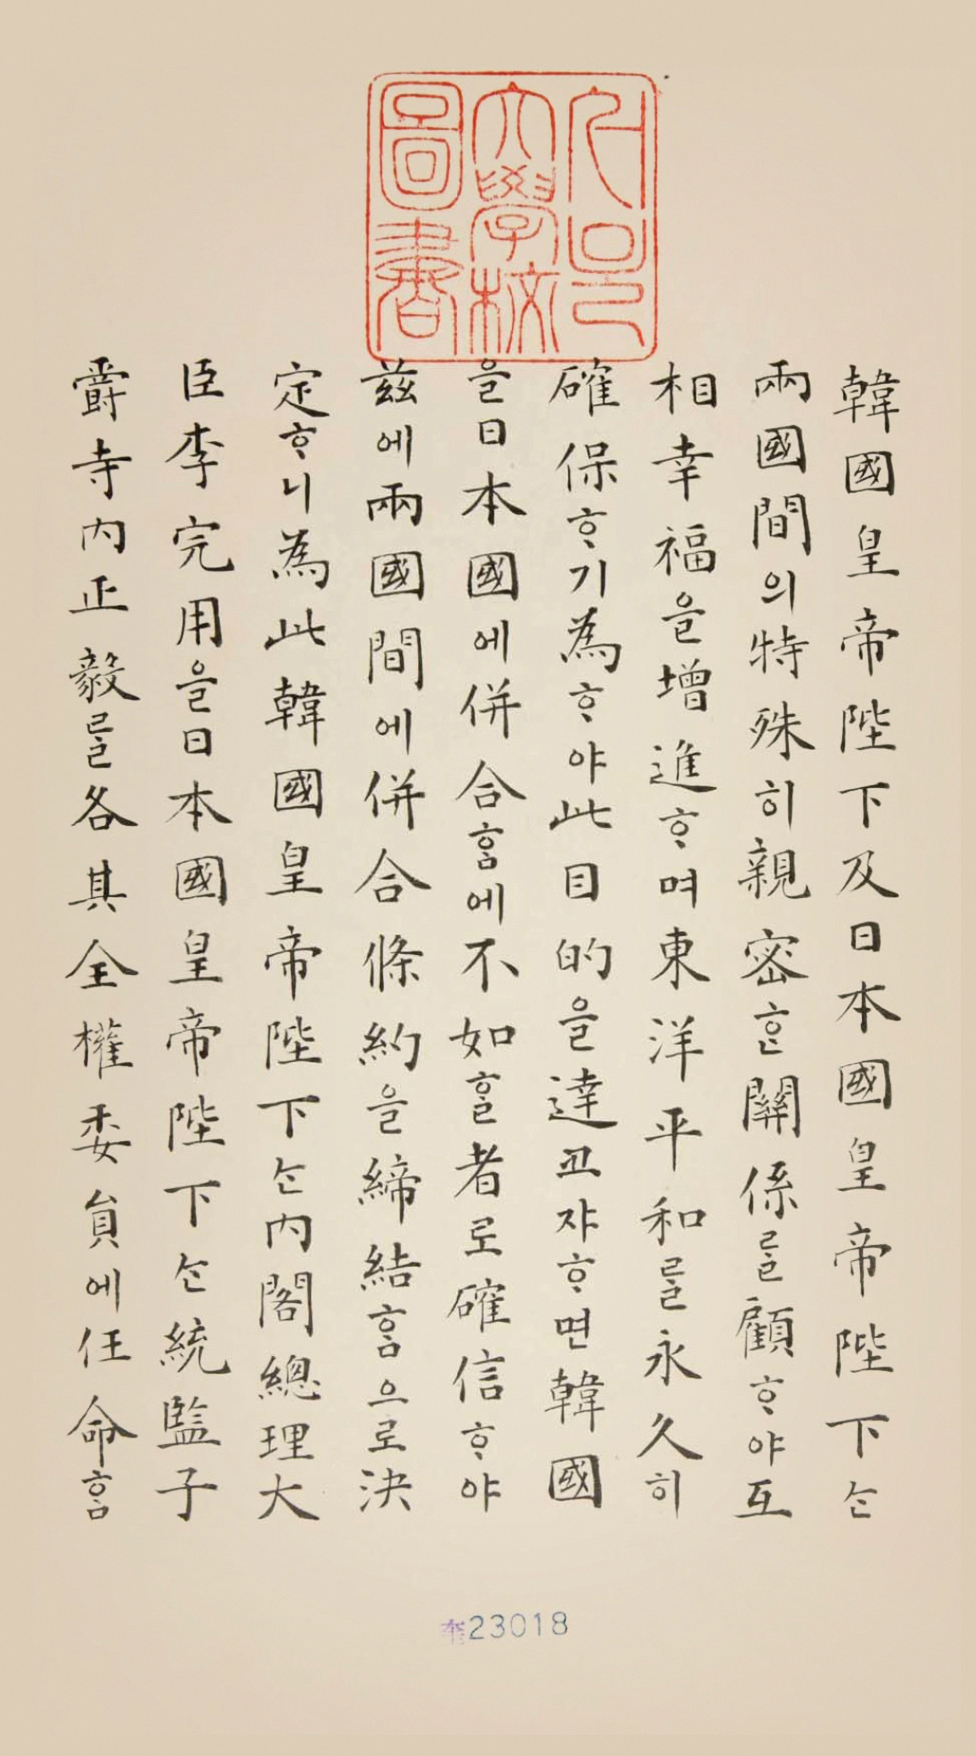 서울
大學校
圖書
韓國皇帝陛下及日本國皇帝陛下ᄂᆞᆫ
兩國間의特殊히親密ᄒᆞᆫ關係ᄅᆞᆯ顧ᄒᆞ야互
相幸福을增進ᄒᆞ며東洋平和ᄅᆞᆯ永久히
確保ᄒᆞ기爲ᄒᆞ야此目的을達코쟈ᄒᆞ면韓國
을日本國에倂合ᄒᆞᆷ에不如ᄒᆞᆯ者로確信ᄒᆞ야
玆에兩國間에倂合條約을締結ᄒᆞᆷ으로決
定ᄒᆞ니爲此韓國皇帝陛下ᄂᆞᆫ內閣總理大
臣李完用을日本國皇帝陛下ᄂᆞᆫ統監子
爵寺內正毅ᄅᆞᆯ各其全權委員에任命ᄒᆞᆷ
奎23018